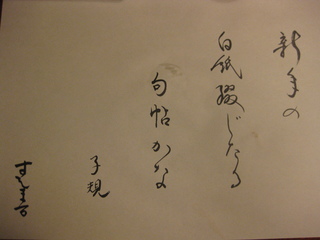 新年の
白紙綴じたる
句帖かな
子規